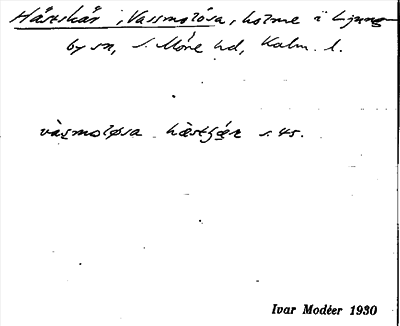 Hästskär, Vassmolösa, holme i Ljung-
by sn, S. Möre hd, Kalm. l.
vàsmoløsa hæstʃǽr s. 45.
Ivar Modéer 1930